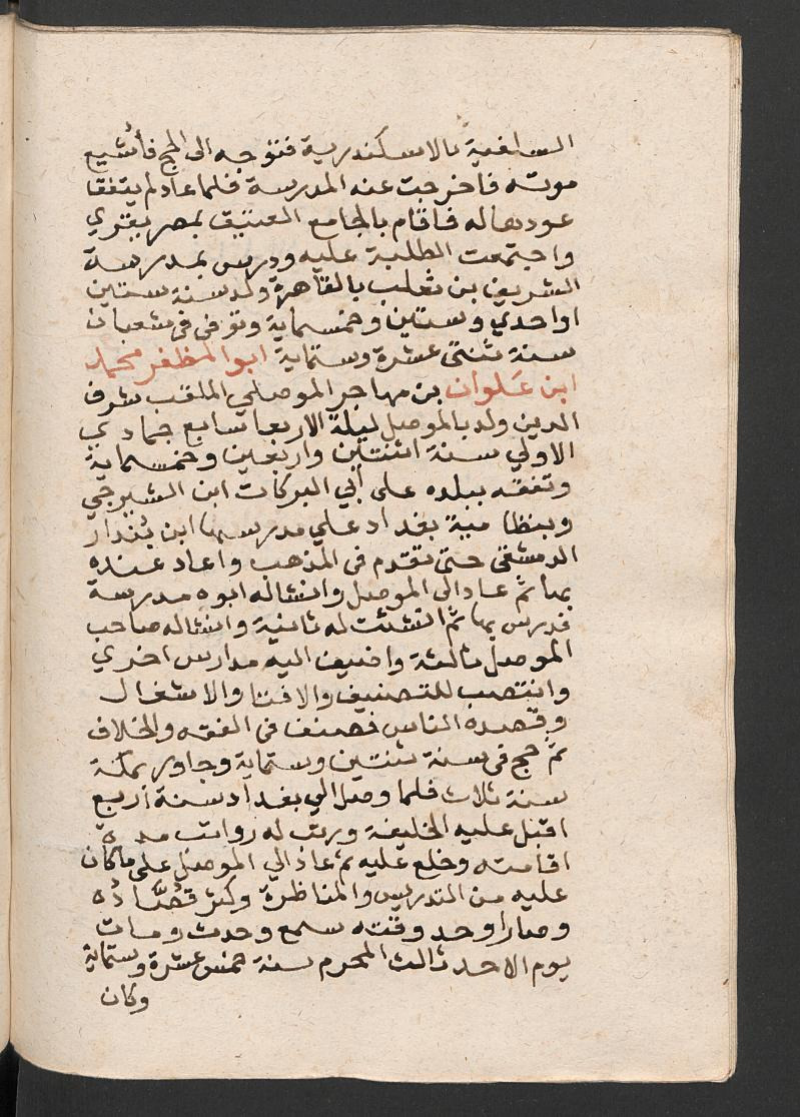 السلفية بالاسكندرية فتوجه الى الحج فأشيع
موته فاخرجت عنه المدرسة فلما عاد لم يتفقا
عودها له فاقام بالجامع العتيق بمصر يقري
واجتمعت الطلبة عليه ودرس بمدرسة
الشريف بن ثعلب بالقاهرة ولد سنة ستين
اواحدي وستين وخمسماية وتوفى فى شعبان
سنة ثنتى عشرة وستماية ابو المظفر محمد
ابن عَلوان بن مهاجر الموصلي الملقب شرف
الدين ولد بالموصل ليلة الاربعا سابع جمادي
الاولي سنة اثنتين واربعين وخمسماية
وتفقه ببلده على أبي البركات ابن الشيرجي
وبنظامية بغداد علي مدرسها ابن بندار
الدمشقى حتى تقدم فى المذهب واعاد عنده
بها ثم عاد الى الموصل وانشاله ابوه مدرسة
فدرس بها ثم انشئت له ثانية وانشاله صاحب
الموصل ثالثة واضيف اليه مدارس اخري
وانتصب للتصنيف والافتا والاشغال
وقصده الناس فصنف فى الفقه والخلاف
ثم حج فى سنة ثنتين وستماية وجاور بمكة
سنة ثلاث فلما وصل الي بغداد سنة اربع
اقبل عليه الخليفة ورتب له رواتب مدة
اقامته وخلع عليه ثم عاد الي الموصل على ماكان
عليه من التدريس والمناظرة وكثر قُصَّاده
وصار اوحد وقته سمع وحدث ومات
يوم الاحد ثالث المحرم سنة خمس عشرة وستماية
وكان